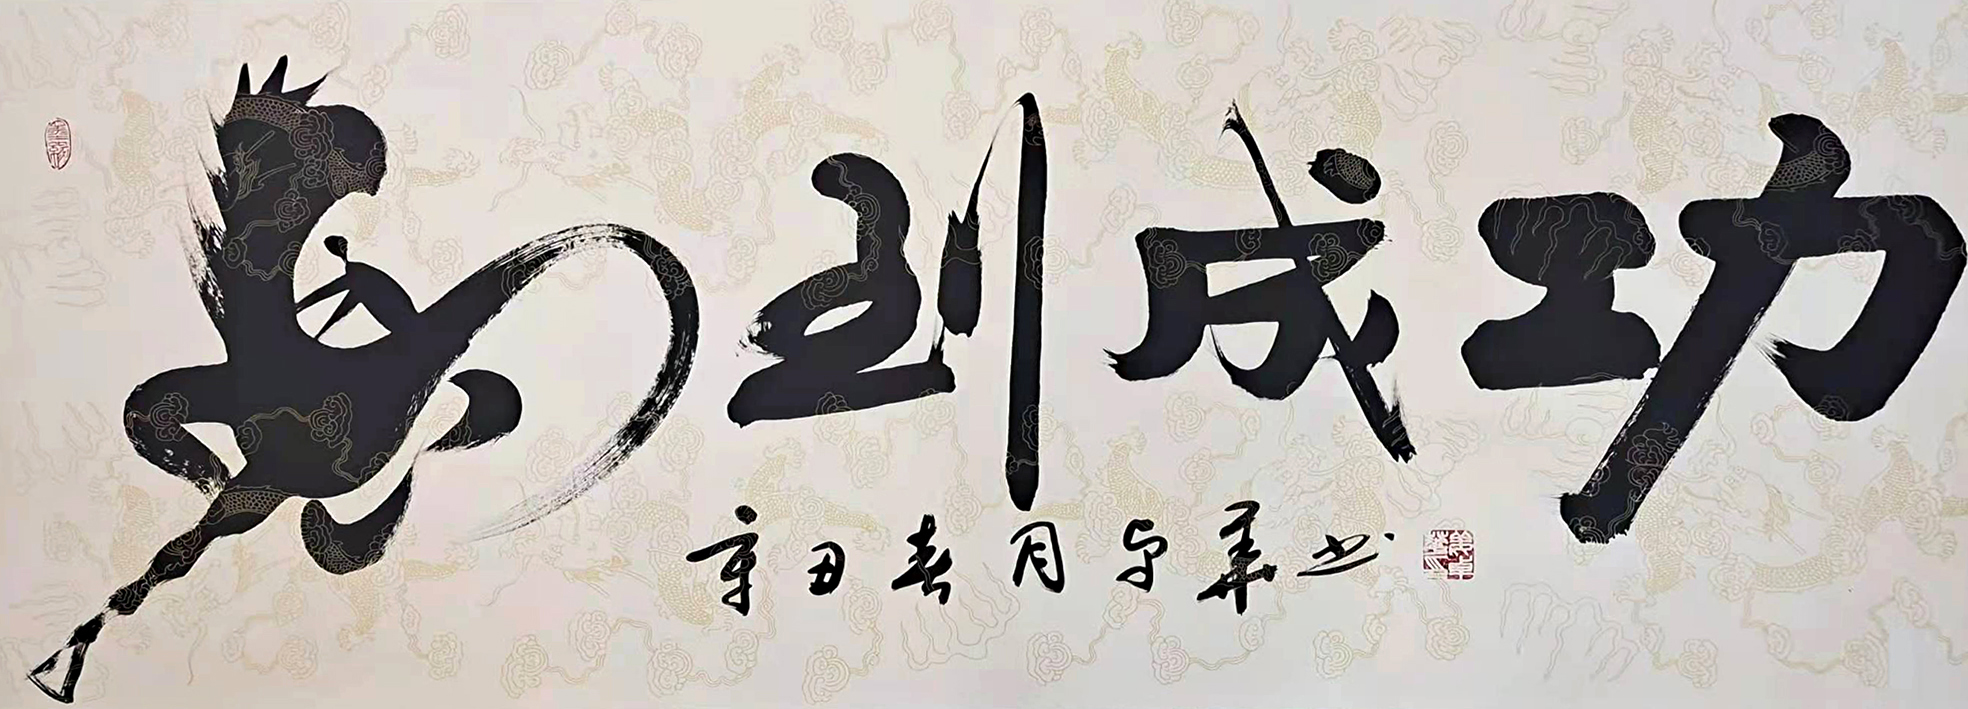 马到成功
辛丑春月卓華书